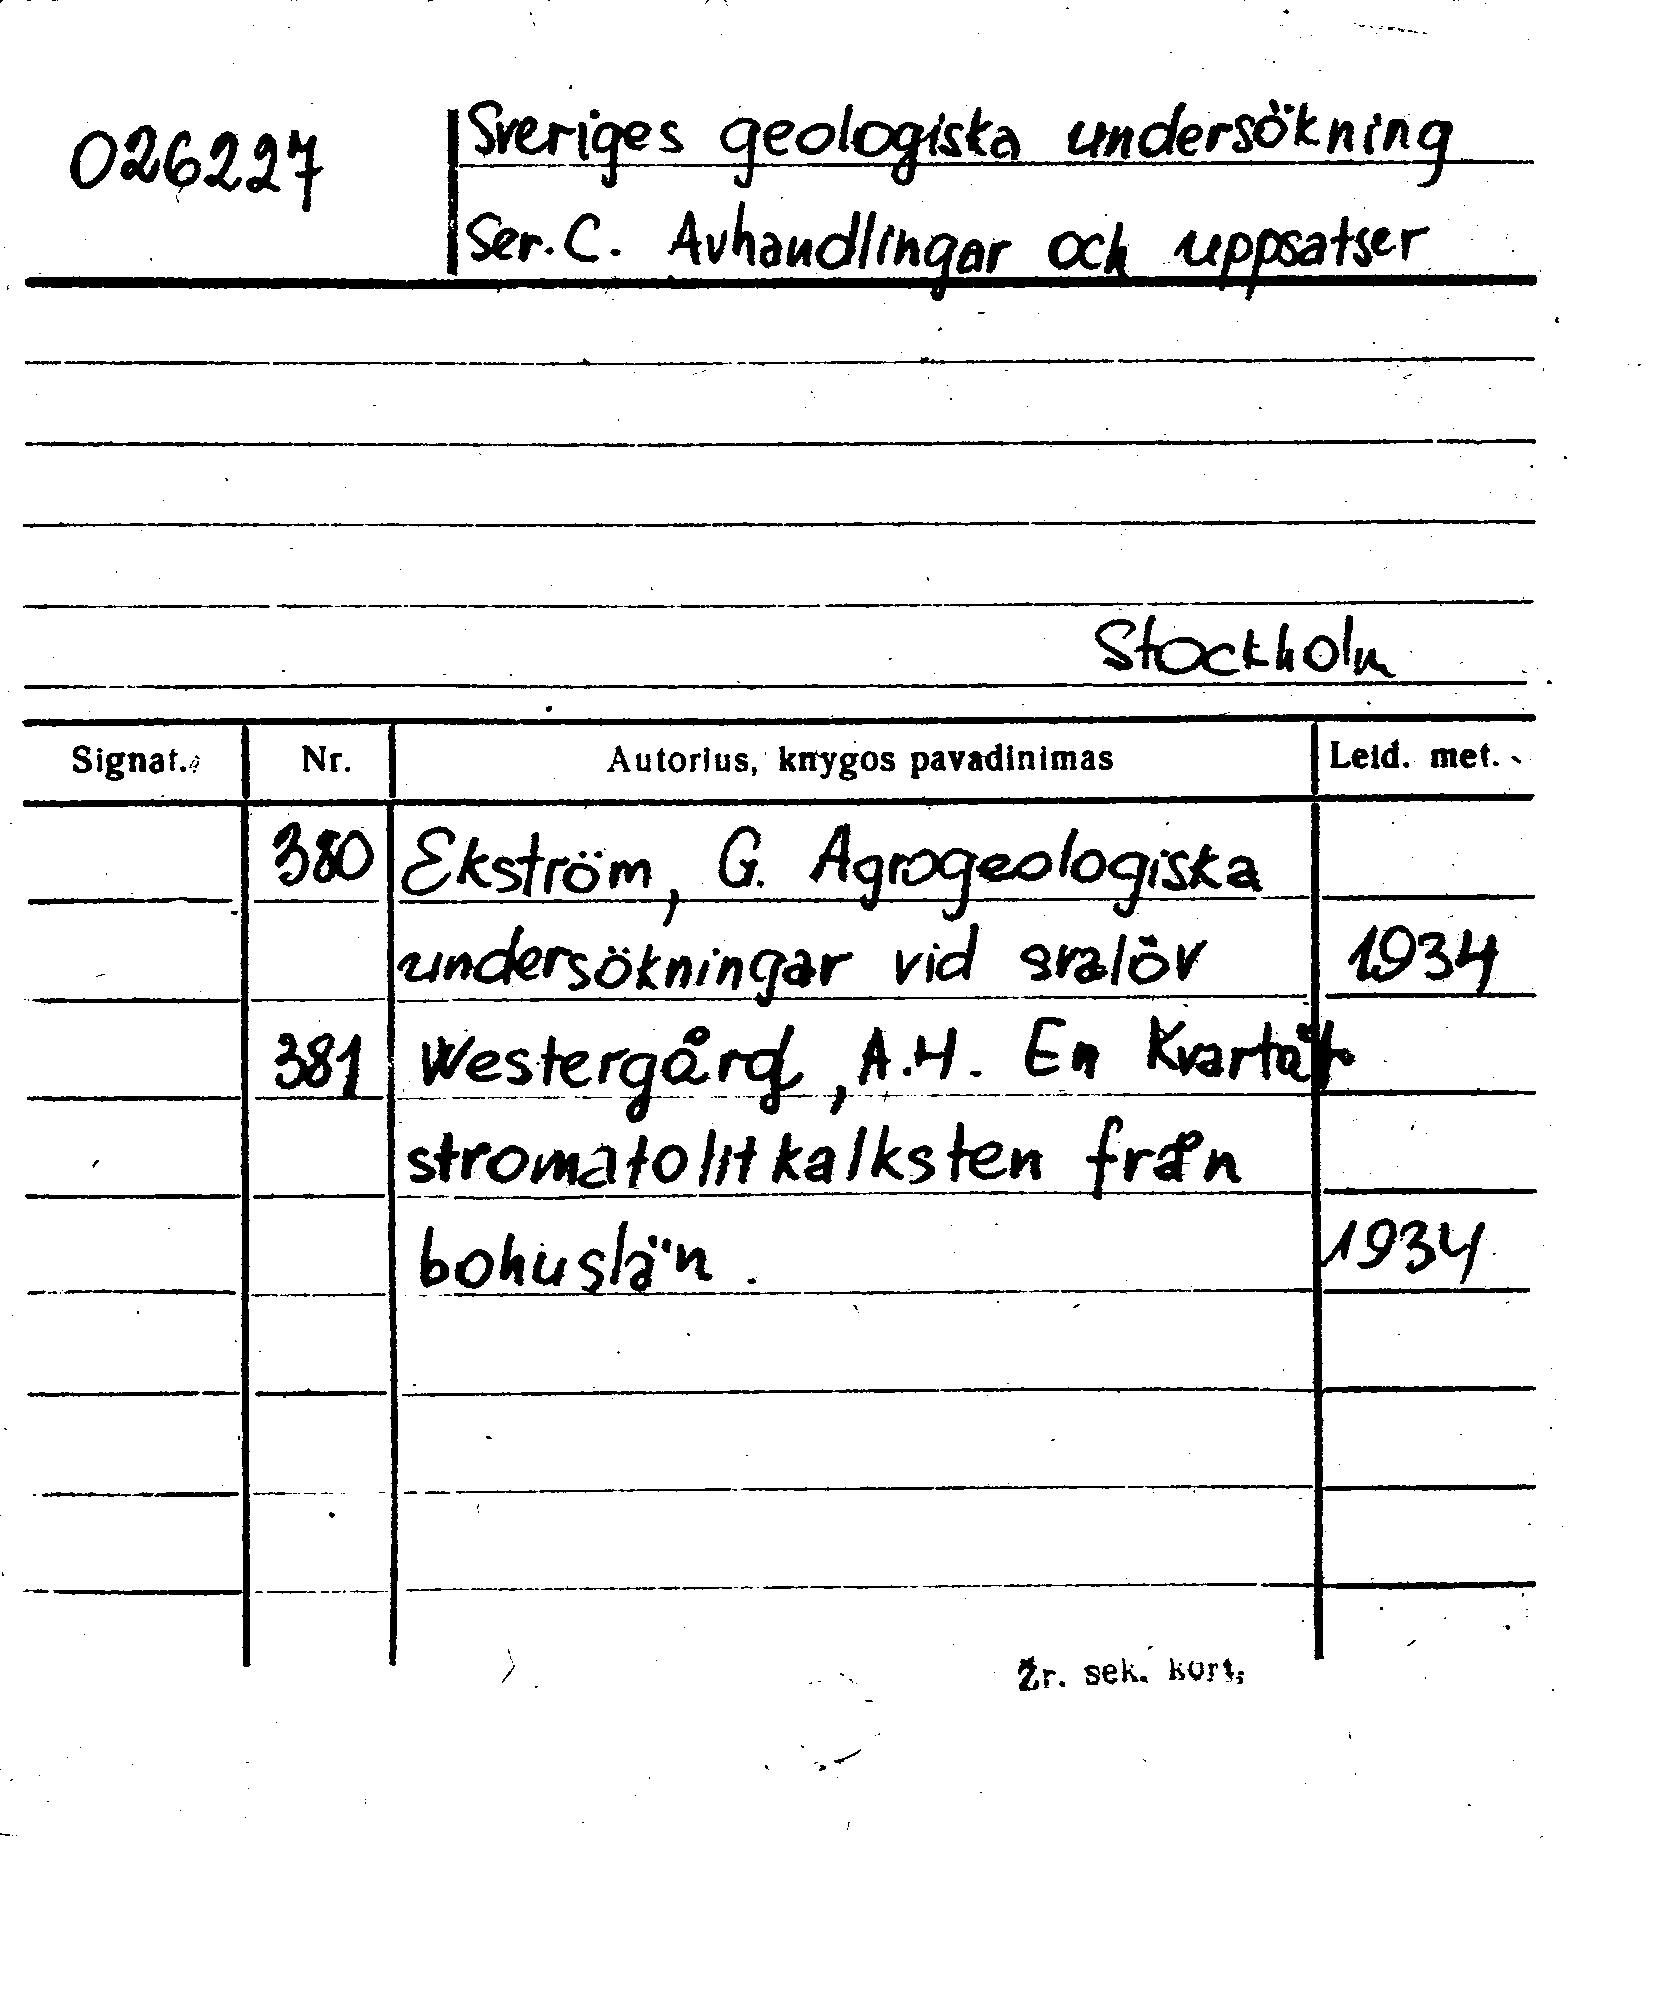 026227
Sveriges geologiska undersökning
Ser. C. Avhandlingar och uppsatser
Stockholm
Signat. Nr. Autorius, knygos pavadinimas Leid. met.
380 Ekström, G. Agrogeologiska
undersökningar vid svalöv 1934
381 Westergård, A.H. En Kvartär
stromatolitkalksten från
bohuslän. 1934
Žr. sek. kort.